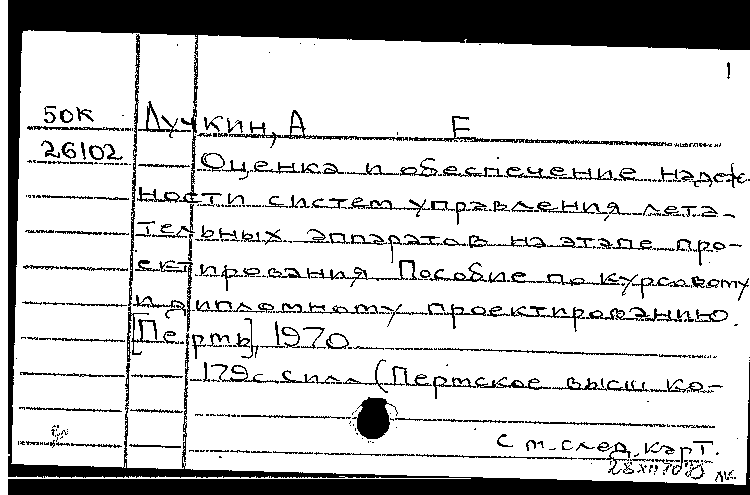 1
50К Лучкин, А Е
26102 Оценка и обеспечение надеж-
ности систем управления лета-
тельных аппаратов на этапе про-
ектирования. Пособие по курсовому
и дипломному проектированию.
[Пермь], 1970.
179с с илл (Пермское высш ко-
см. след. карт.
28 XII 70